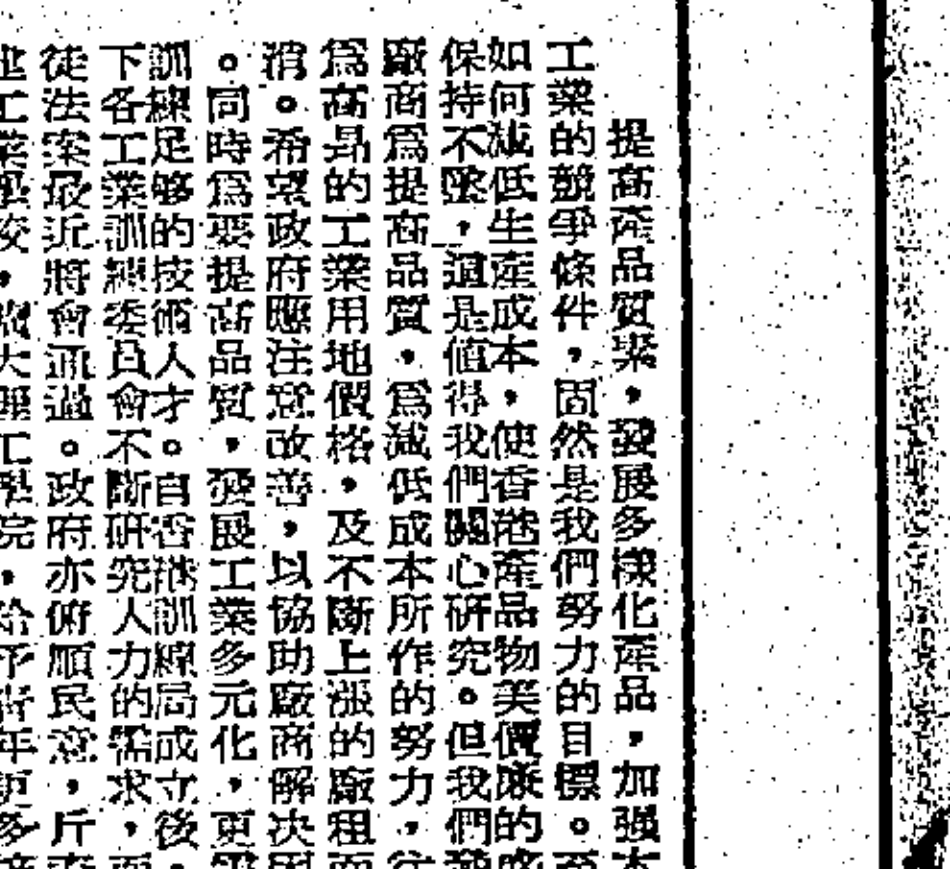 提高產品質素，發展多樣化產品，加强本
工業的競爭條件，固然是我們努力的目標。至
如何減低生產成本，使香港產品物美價廉的
保持不墜，這是值得我們關心研究。但我們
廠商爲提高品質，爲減低成本所作的努力，往
爲高昂的工業用地價格，及不斷上漲的廠租
消。希望政府應注意改善，以協助廠商解决
。同時爲要提高品質，發展工業多元化，更
訓練足够的技術人才。自香港訓練局成立後，
下各工業訓練委員會不斷研究人力的需求，而
徒法案最近將會通過。政府亦俯順民意，斥
工業學校，理工學院，給予青年更多